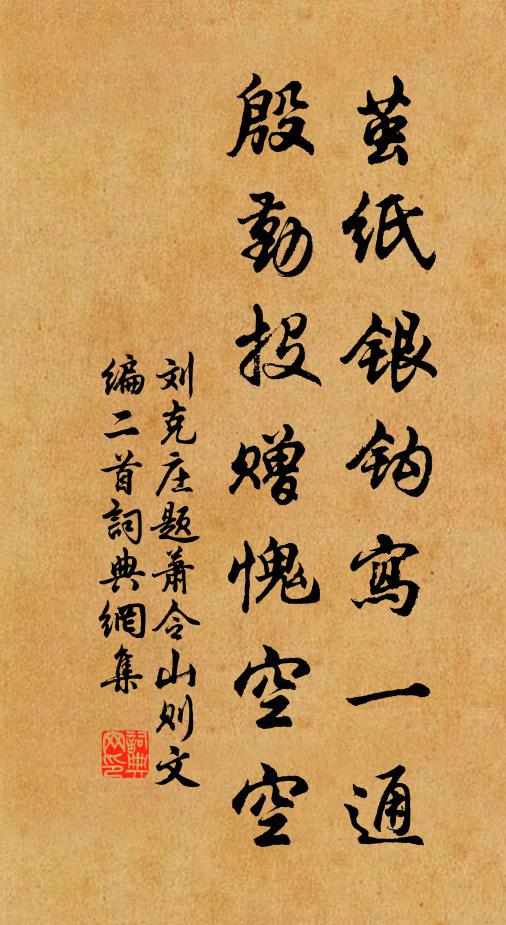 茧纸银钩寫一通
殷勤投赠愧空空
刘克庄题萧令山则文
编二首詞典網集
詞典網印